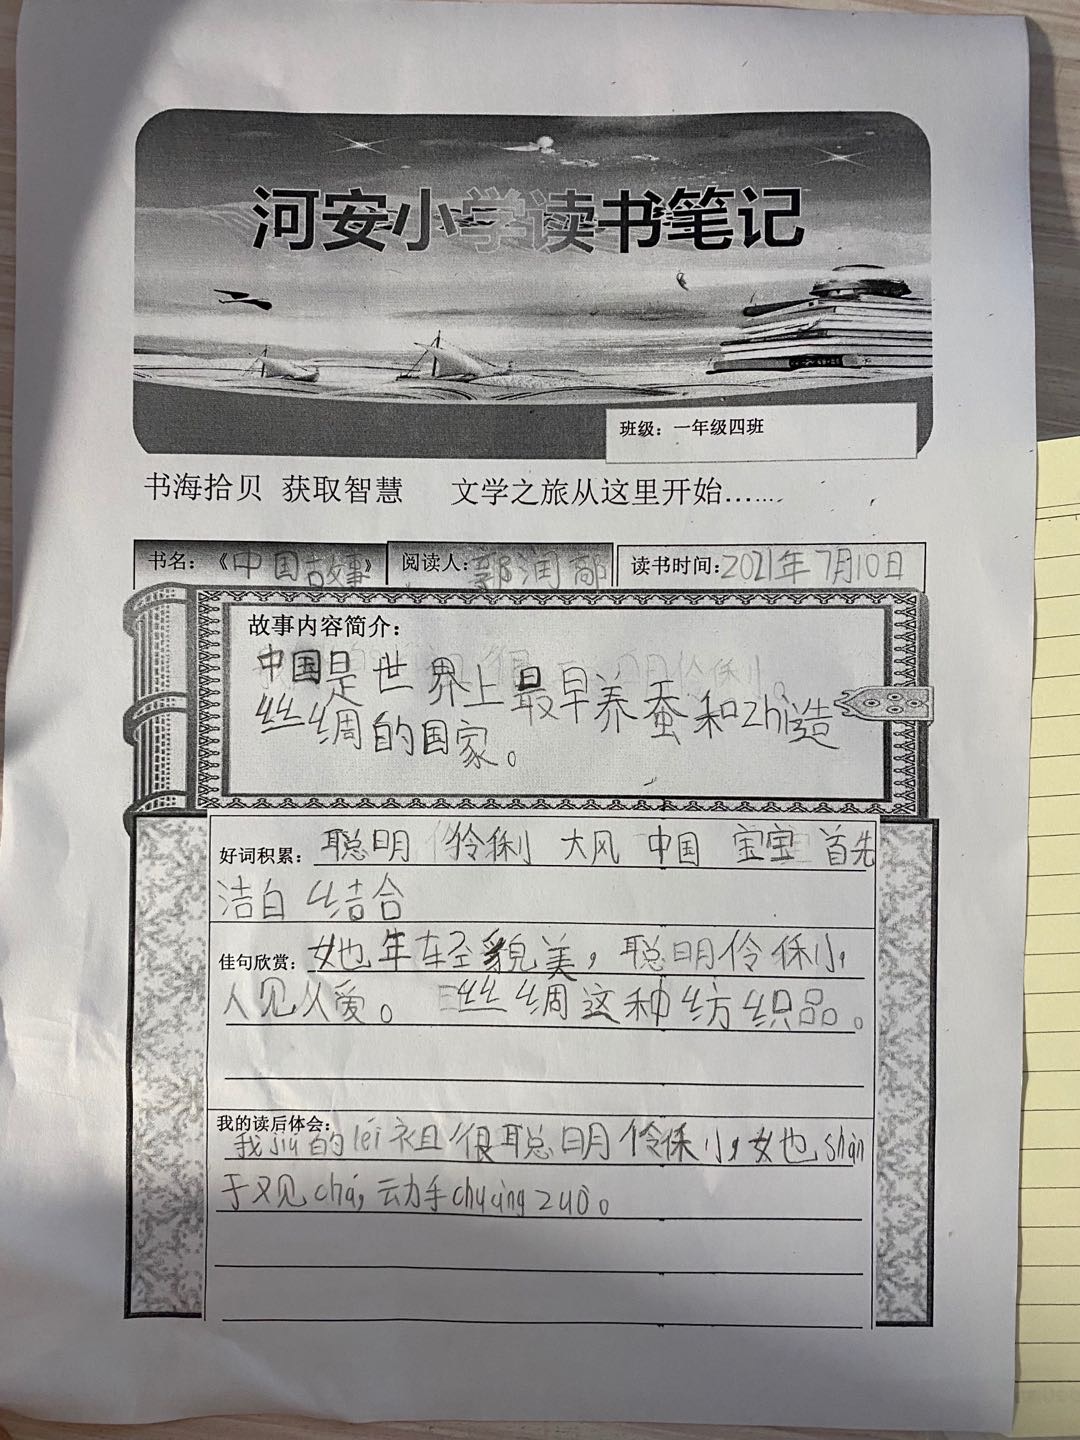 河安小学读书笔记
班级：一年级四班
书海拾贝 获取智慧 文学之旅从这里开始……
书名：《中国故事》 阅读人：郭润 读书时间：2021年7月10日
故事内容简介：
中国是世界上最早养蚕和zhi造
丝绸的国家。
好词积累：聪明 伶俐 大风 中国 宝宝 首先
洁白 结合
佳句欣赏：她年轻貌美，聪明伶俐，
人见人爱。丝绸这种纺织品。
我的读后体会：
我jiu的léi祖很聪明伶俐，她shàn
于观chá，动手chuàng zuò。